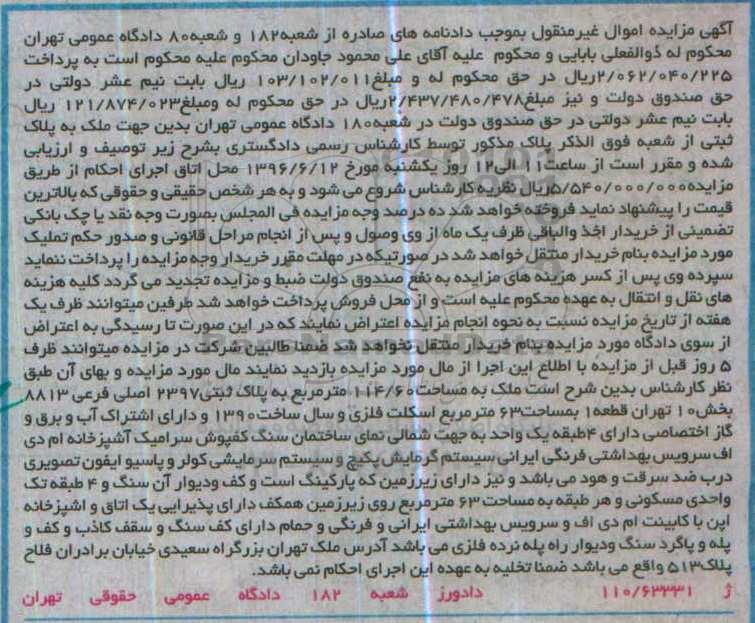 آگهی مزایده اموال غیرمنقول بموجب دادنامه های صادره از شعبه۱۸۲ و شعبه۸۰ دادگاه عمومی تهران
محکوم له ذوالفعلی بابایی و محکوم علیه آقای علی محمود جاودان محکوم علیه محکوم است به پرداخت
۲/۰۶۲/۰۴۰/۲۲۵ریال در حق محکوم له و مبلغ۱۰۳/۱۰۲/۰۱۱ ریال بابت نیم عشر دولتی در
حق صندوق دولت و نیز مبلغ۲/۴۳۷/۴۸۰/۴۷۸ریال در حق محکوم له ومبلغ۱۲۱/۸۷۴/۰۲۳ ریال
بابت نیم عشر دولتی در حق صندوق دولت در شعبه۱۸۰ دادگاه عمومی تهران بدین جهت ملک به پلاک
ثبتی از شعبه فوق الذکر پلاک مذکور توسط کارشناس رسمی دادگستری بشرح زیر توصیف و ارزیابی
شده و مقرر است از ساعت۱۱ الی۱۲ روز یکشنبه مورخ ۱۳۹۶/۶/۱۲ محل اتاق اجرای احکام از طریق
مزایده۵/۵۴۰/۰۰۰/۰۰۰ریال نظریه کارشناس شروع می شود و به هر شخص حقیقی و حقوقی که بالاترین
قیمت را پیشنهاد نماید فروخته خواهد شد ده درصد وجه مزایده فی المجلس بصورت وجه نقد یا چک بانکی
تضمینی از خریدار اخذ والباقی ظرف یک ماه از وی وصول و پس از انجام مراحل قانونی و صدور حکم تملیک
مورد مزایده بنام خریدار منتقل خواهد شد در صورتیکه در مهلت مقرر خریدار وجه مزایده را پرداخت ننماید
سپرده وی پس از کسر هزینه های مزایده به نفع صندوق دولت ضبط و مزایده تجدید می گردد کلیه هزینه
های نقل و انتقال به عهده محکوم علیه است و از محل فروش پرداخت خواهد شد طرفین میتوانند ظرف یک
هفته از تاریخ مزایده نسبت به نحوه انجام مزایده اعتراض نمایند که در این صورت تا رسیدگی به اعتراض
از سوی دادگاه مورد مزایده بنام خریدار منتقل نخواهد شد ضمنا طالبین شرکت در مزایده میتوانند ظرف
۵ روز قبل از مزایده با اطلاع این اجرا از مال مورد مزایده بازدید نمایند مال مورد مزایده و بهای آن طبق
نظر کارشناس بدین شرح است ملک به مساحت۱۱۴/۶۰ مترمربع به پلاک ثبتی۲۳۹۷ اصلی فرعی ۸۸۱۳
بخش۱۰ تهران قطعه۱ بمساحت۶۳ مترمربع اسکلت فلزی و سال ساخت۱۳۹۰ و دارای اشتراک آب و برق و
گاز اختصاصی دارای ۴طبقه یک واحد به جهت شمالی نمای ساختمان سنگ کفپوش سرامیک آشپزخانه ام دی
اف سرویس بهداشتی فرنگی ایرانی سیستم گرمایش پکیج و سیستم سرمایشی کولر و پاسیو ایفون تصویری
درب ضد سرقت و هود می باشد و نیز دارای زیرزمین که پارکینگ است و کف ودیوار آن سنگ و ۴ طبقه تک
واحدی مسکونی و هر طبقه به مساحت ۶۳ مترمربع روی زیرزمین همکف دارای پذیرایی یک اتاق و اشپزخانه
اپن با کابینت ام دی اف و سرویس بهداشتی ایرانی و فرنگی و حمام دارای کف سنگ و سقف کاذب و کف و
پله و پاگرد سنگ ودیوار راه پله نرده فلزی می باشد آدرس ملک تهران بزرگراه سعیدی خیابان برادران فلاح
پلاک۵۱۳ واقع می باشد ضمنا تخلیه به عهده این اجرای احکام نمی باشد.
ژ ۱۱۰/۶۳۳۳۱ دادورز شعبه ۱۸۲ دادگاه عمومی حقوقی تهران